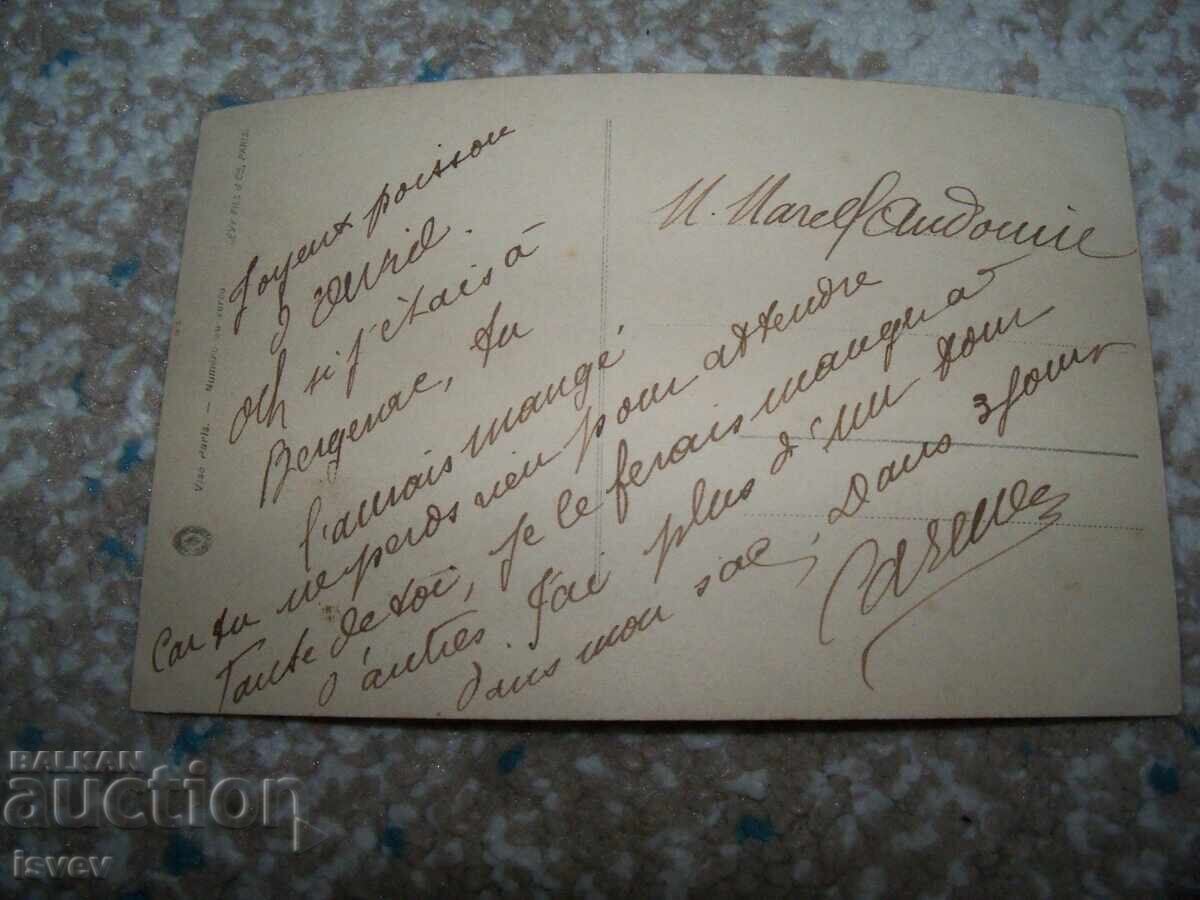 LEVY FILS & Co, PARIS.
Visé Paris. — Numéro au verso
Joyeux poisson
d'avril.
Och si j'étais à
Bergerac, tu
l'aurais mangé
Car tu ne perds rien pour attendre
Tante de toi, je le ferais manger à
d'autres. J'ai plus d'un tour
dans mon sac, Dans 3 jours
M. Marcel Audouin
BALKAN
auction
isvev